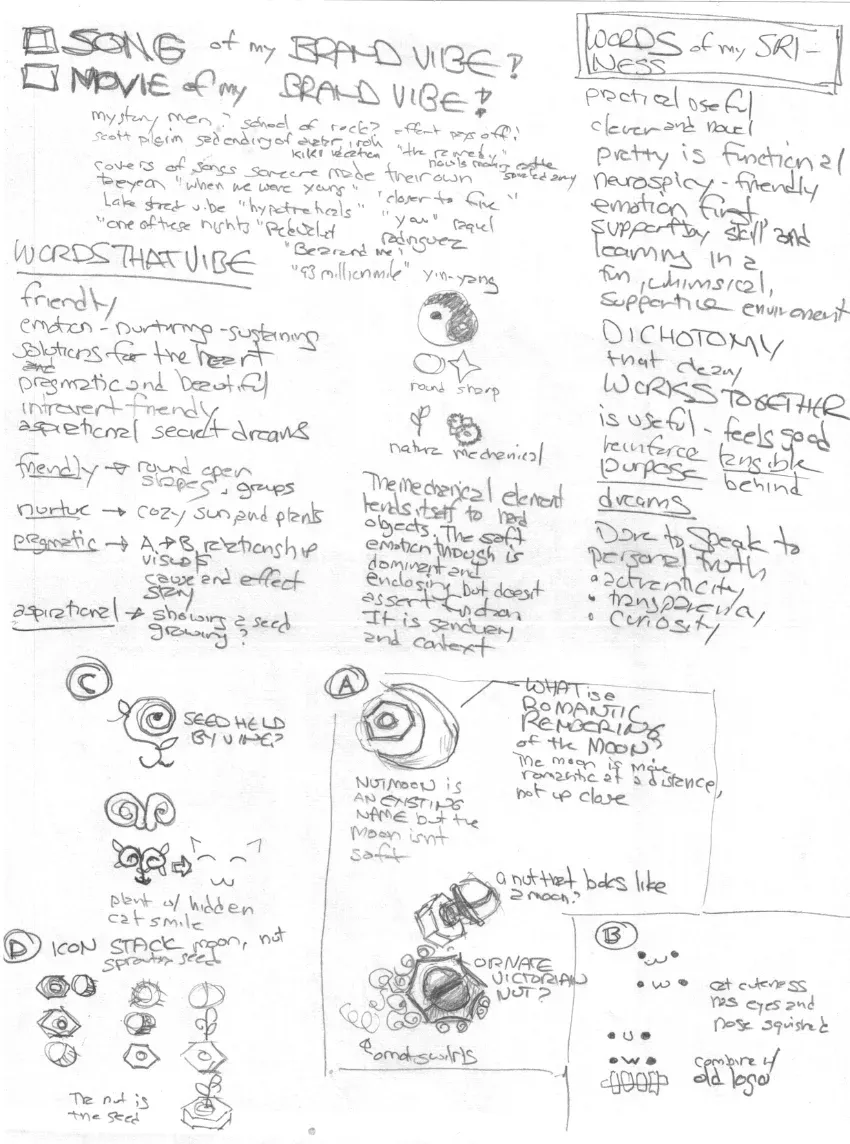 SONG of my BRAND VIBE?
MOVIE of my BRAND VIBE?
mystery men? school of rock? effort pays off!
scott pilgrim sad ending of
"the remedy"
covers of songs someone made their own
"when we were young" "closer to fine"
Lake street vibe "hypotheticals" "you" raquel
rodriguez
"one of these nights"
"Bear and me"
"93 million mile" yin-yang
WORDS THAT VIBE
friendly
emotion-nurturing-sustaining
solutions for the heart
and
pragmatic and beautiful
introvert friendly
aspirational secret dreams
friendly → round open
shapes, groups
nurture → cozy sun and plants
pragmatic → A→B relationship
visuals
cause and effect
story
aspirational → showing a seed
growing?
round sharp
nature mechanical
The mechanical element
lends itself to hard
objects. The soft
emotion though is
dominant and
enclosing but doesnt
assert function
It is sanctuary
and context
WORDS of my SRI-
NESS
practical useful
clever and novel
pretty is functional
neurospicy-friendly
emotion first
support by skill and
learning in a
fun, whimsical,
supportive environment
DICHOTOMY
that
WORKS TOGETHER
is useful - feels good
reinforce tangible
purpose behind
dreams
Dare to speak to
personal truth
• authenticity
• transparency
• curiosity
C
SEED HELD
BY VINE?
plant w/ hidden
cat smile
A
WHAT is a
ROMANTIC
RENDERING
of the MOON?
The moon is more
romantic at a distance,
not up close
NUTMOON is
AN EXISTING
NAME but the
moon isnt
soft
a nut that looks like
a moon?
ORNATE
VICTORIAN
NUT?
ornate swirls
D ICON STACK moon, nut
sprouting seed
The nut is
the seed
B
cat cuteness
has eyes and
nose squished
combine w/
old logo